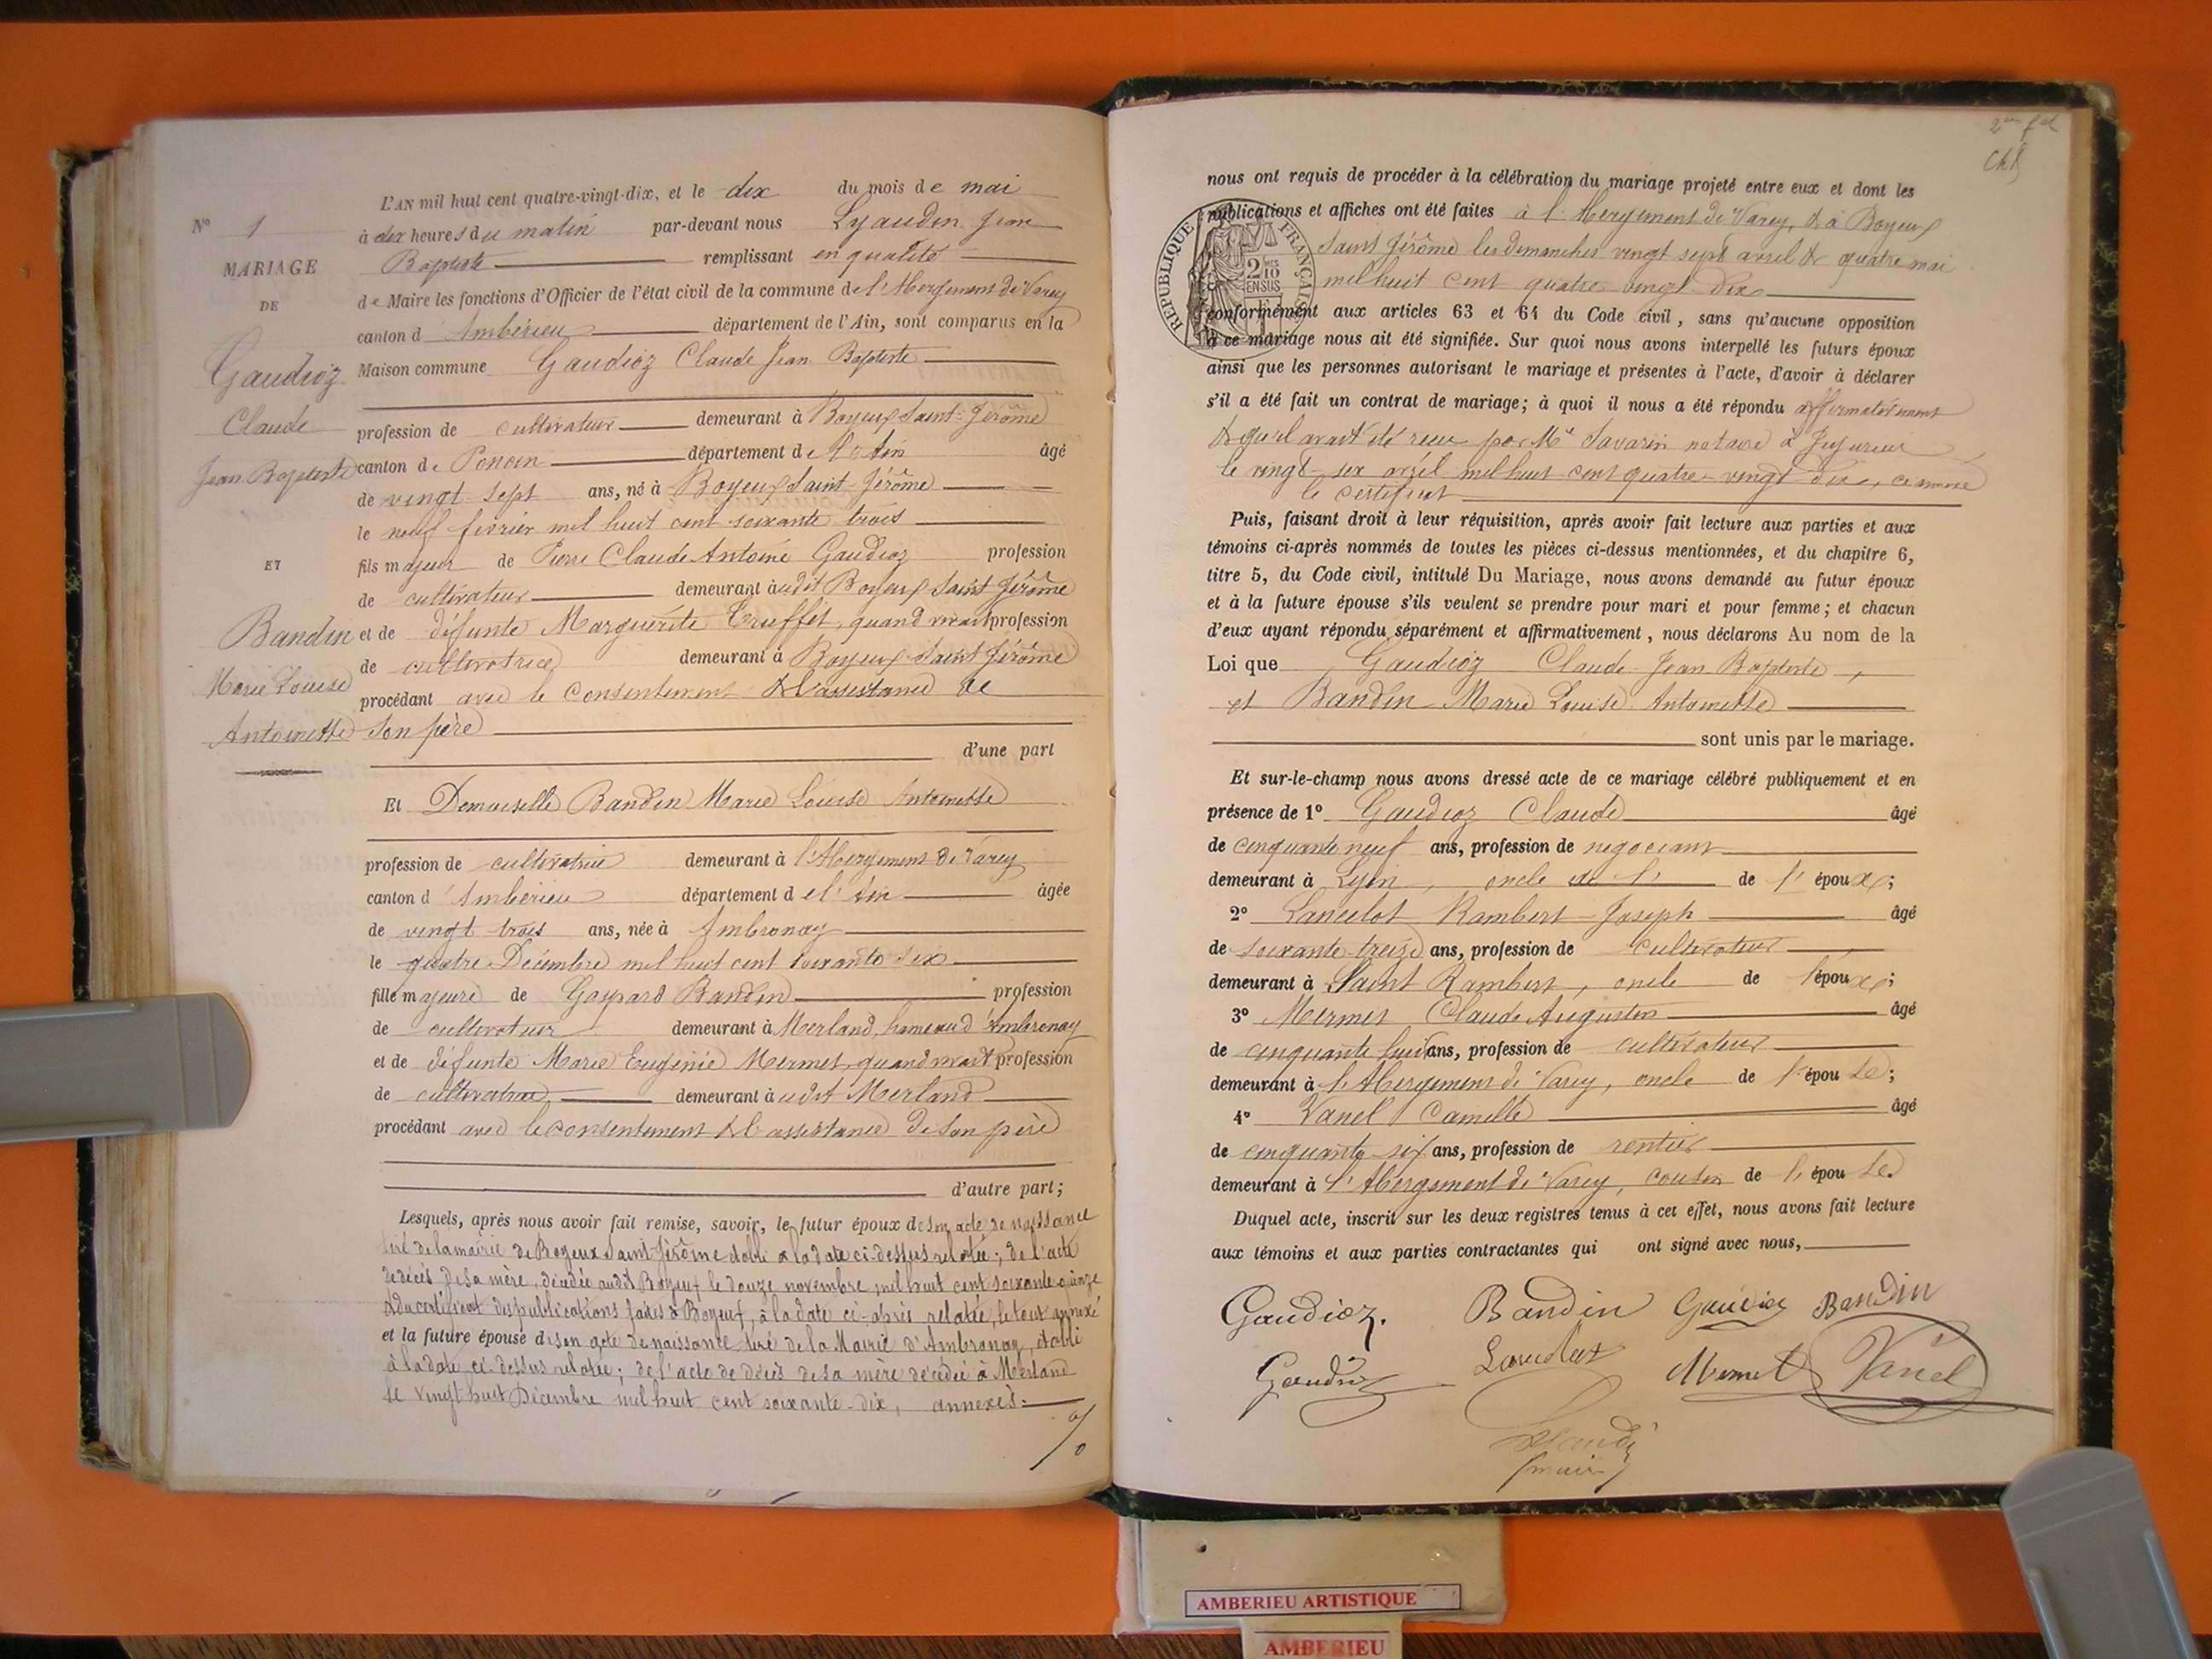 N° 1
MARIAGE
DE
Gaudioz
Claude
Jean Baptiste
ET
Bandin
Marie Louise
Antoinette
L'AN mil huit cent quatre-vingt-dix, et le dix du mois de mai
à dix heures du matin par-devant nous Lyaudin Jean
Baptiste remplissant en qualité
de Maire les fonctions d'Officier de l'état civil de la commune de l'Abergement de Varey
canton d'Ambérieu département de l'Ain, sont comparus en la
Maison commune Gaudioz Claude Jean Baptiste
profession de cultivateur demeurant à Boyeux Saint-Jérôme
canton de Poncin département de l'Ain âgé
de vingt-sept ans, né à Boyeux Saint-Jérôme
le neuf février mil huit cent soixante trois
fils majeur de Pierre Claude Antoine Gaudioz profession
de cultivateur demeurant audit Boyeux Saint Jérôme
et de défunte Marguerite Truffet, quand vivait profession
de cultivatrice demeurant à Boyeux Saint Jérôme
procédant avec le consentement & l'assistance de
son père
d'une part
Et Demoiselle Bandin Marie Louise Antoinette
profession de cultivatrice demeurant à l'Abergement de Varey
canton d'Ambérieu département de l'Ain âgée
de vingt trois ans, née à Ambronay
le quatre Décembre mil huit cent soixante six
fille majeure de Gaspard Bandin profession
de cultivateur demeurant à Merland, hameau d'Ambronay
et de défunte Marie Eugénie Mermet, quand vivait profession
de cultivatrice demeurant audit Merland
procédant avec le consentement & l'assistance de son père
d'autre part;
Lesquels, après nous avoir fait remise, savoir, le futur époux de son acte de naissance
tiré de la mairie de Boyeux Saint-Jérôme établi à la date ci-dessus relatée; de l'acte
de décès de sa mère, décédée audit Boyeux le douze novembre mil huit cent soixante-quinze
& du certificat des publications faites à Boyeux, à la date ci-après relatée, le tout annexé
et la future épouse de son acte de naissance tiré de la Mairie d'Ambronay, établi
à la date ci-dessus relatée; de l'acte de décès de sa mère décédée à Merland
le vingt huit Décembre mil huit cent soixante-dix, annexés.
nous ont requis de procéder à la célébration du mariage projeté entre eux et dont les
publications et affiches ont été faites à l'Abergement de Varey, & à Boyeux
Saint Jérôme les dimanches vingt sept avril & quatre mai
mil huit cent quatre-vingt-dix
RÉPUBLIQUE FRANÇAISE
2 MES 10 EN SUS
conformément aux articles 63 et 64 du Code civil, sans qu'aucune opposition
à ce mariage nous ait été signifiée. Sur quoi nous avons interpellé les futurs époux
ainsi que les personnes autorisant le mariage et présentes à l'acte, d'avoir à déclarer
s'il a été fait un contrat de mariage; à quoi il nous a été répondu affirmativement
& qu'il avait été reçu par Me Savarin notaire à Jujurieux
le vingt-six avril mil huit cent quatre-vingt-dix, ci annexé
le certificat
Puis, faisant droit à leur réquisition, après avoir fait lecture aux parties et aux
témoins ci-après nommés de toutes les pièces ci-dessus mentionnées, et du chapitre 6,
titre 5, du Code civil, intitulé Du Mariage, nous avons demandé au futur époux
et à la future épouse s'ils veulent se prendre pour mari et pour femme; et chacun
d'eux ayant répondu séparément et affirmativement, nous déclarons Au nom de la
Loi que Gaudioz Claude Jean Baptiste,
et Bandin Marie Louise Antoinette
sont unis par le mariage.
Et sur-le-champ nous avons dressé acte de ce mariage célébré publiquement et en
présence de 1° Gaudioz Claude âgé
de cinquante neuf ans, profession de négociant
demeurant à Lyon, oncle de l' de l'époux;
2° Lancelot Rambert Joseph âgé
de soixante treize ans, profession de cultivateur
demeurant à Saint Rambert, oncle de l'époux;
3° Mermet Claude Augustin âgé
de cinquante huit ans, profession de cultivateur
demeurant à l'Abergement de Varey, oncle de l'épouse;
4° Vanel Camille âgé
de cinquante six ans, profession de rentier
demeurant à l'Abergement de Varey, cousin de l'épouse.
Duquel acte, inscrit sur les deux registres tenus à cet effet, nous avons fait lecture
aux témoins et aux parties contractantes qui ont signé avec nous,
Gaudioz. Bandin Gaudioz Bandin
Gaudioz Mermet Vanel
AMBERIEU ARTISTIQUE
AMBERIEU